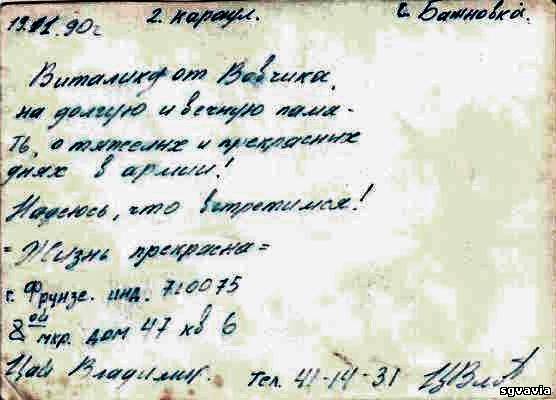 19.01.90г 2. караул. с. Бажновка.
Виталику от Вовчика,
на долгую и вечную памя-
ть, о тяжелых и прекрасных
днях в армии!
Надеюсь, что встретимся!
= Жизнь прекрасна =
г. Фрунзе. инд. 720075
8ой мкр. дом 47 кв 6
Цай Владимир. Тел. 41-14-31
sgvavia